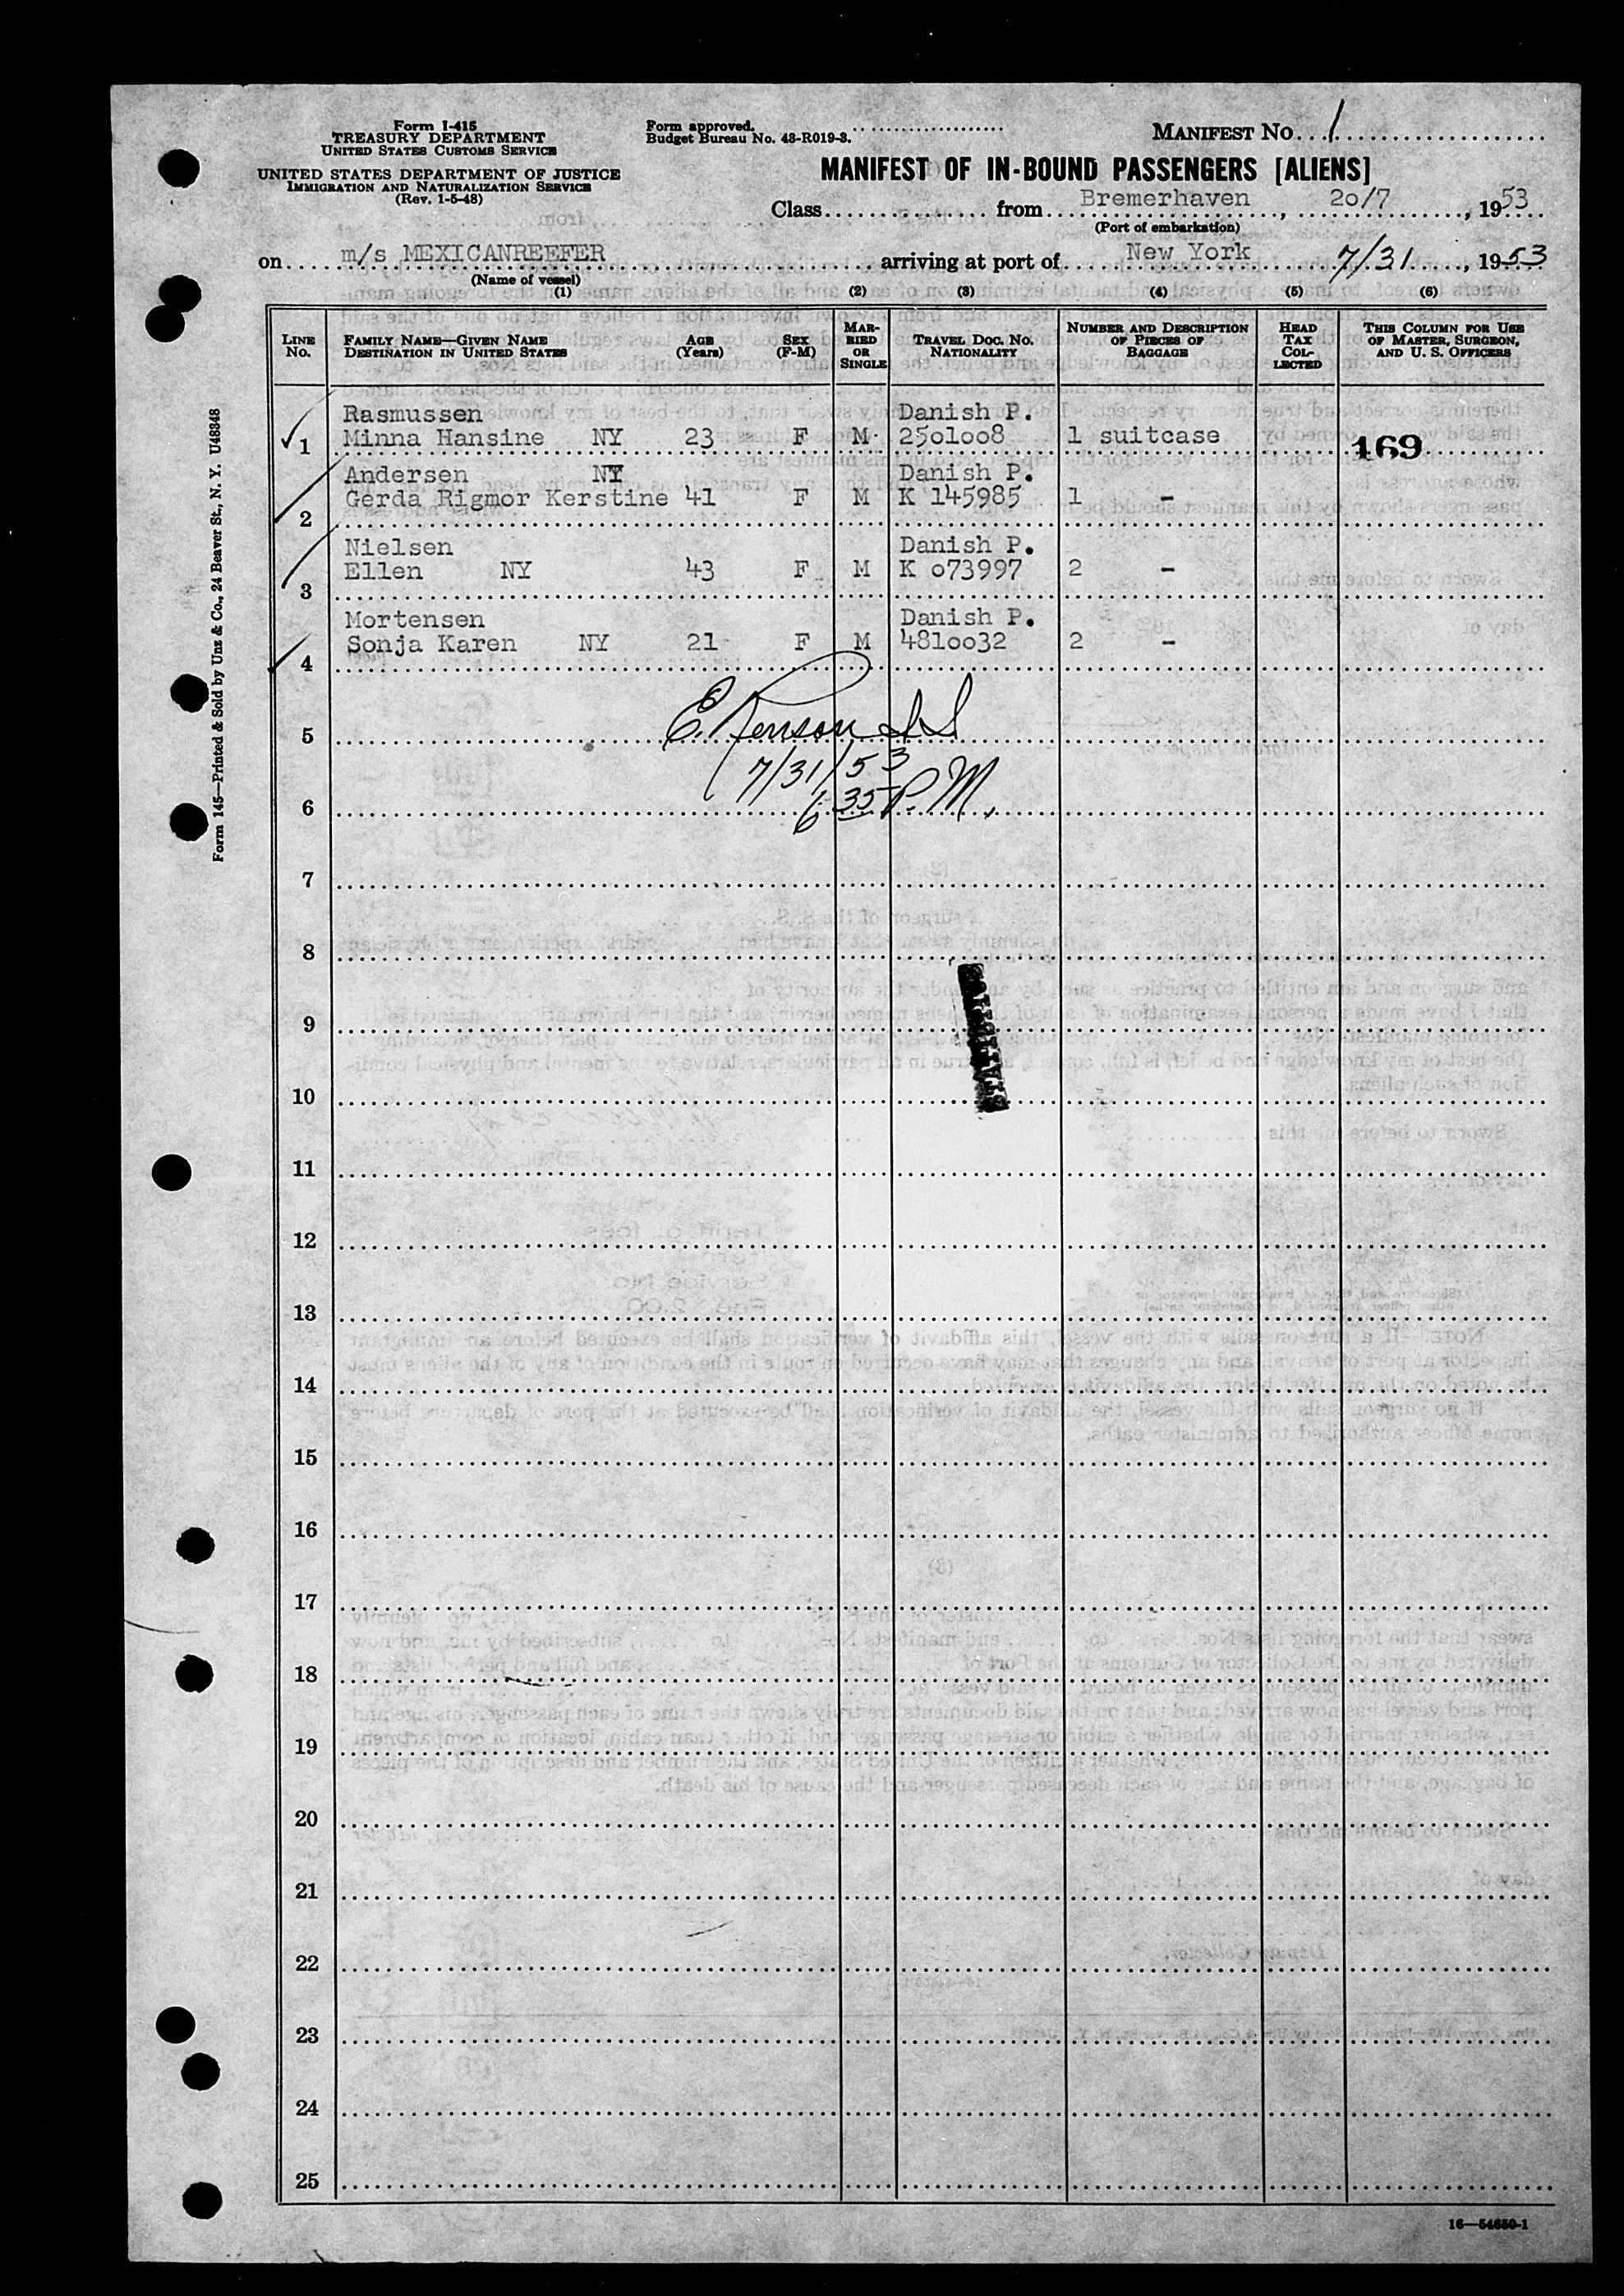 Form I-415
TREASURY DEPARTMENT
UNITED STATES CUSTOMS SERVICE
UNITED STATES DEPARTMENT OF JUSTICE
IMMIGRATION AND NATURALIZATION SERVICE
(Rev. 1-5-48)
Form approved.
Budget Bureau No. 43-R019-3.
MANIFEST No. 1
MANIFEST OF IN-BOUND PASSENGERS [ALIENS]
Class from Bremerhaven, 2o/7, 1953
(Port of embarkation)
on m/s MEXICANREEFER arriving at port of New York 7/31, 1953
(Name of vessel)
(1) (2) (3) (4) (5) (6)
LINE No. FAMILY NAME—GIVEN NAME DESTINATION IN UNITED STATES AGE (Years) SEX (F-M) MARRIED OR SINGLE TRAVEL DOC. NO. NATIONALITY NUMBER AND DESCRIPTION OF PIECES OF BAGGAGE HEAD TAX COLLECTED THIS COLUMN FOR USE OF MASTER, SURGEON, AND U. S. OFFICERS
Rasmussen Danish P.
1 Minna Hansine NY 23 F M 25o1oo8 1 suitcase 169
Andersen NY Danish P.
2 Gerda Rigmor Kerstine 41 F M K 145985 1 -
Nielsen Danish P.
3 Ellen NY 43 F M K o73997 2 -
Mortensen Danish P.
4 Sonja Karen NY 21 F M 481oo32 2 -
5 E.
7/31/53
6 6:35 P.M.
7
8
9
STATISTICS
10
11
12
13
14
15
16
17
18
19
20
21
22
23
24
25
Form 145—Printed & Sold by Unz & Co., 24 Beaver St., N. Y. U48348
16—54650-1